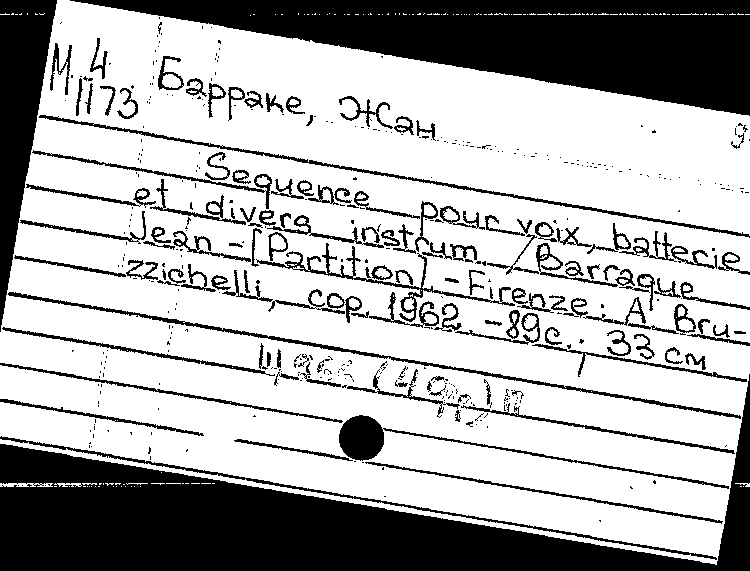 М 4
П 73
Барраке, Жан
9
Sequence pour voix, batterie
et divers instrum. / Barraque
Jean - [Partition] - Firenze: A. Bru-
zzichelli, cop. 1962. - 89с.; 33 см.
(49рр) П